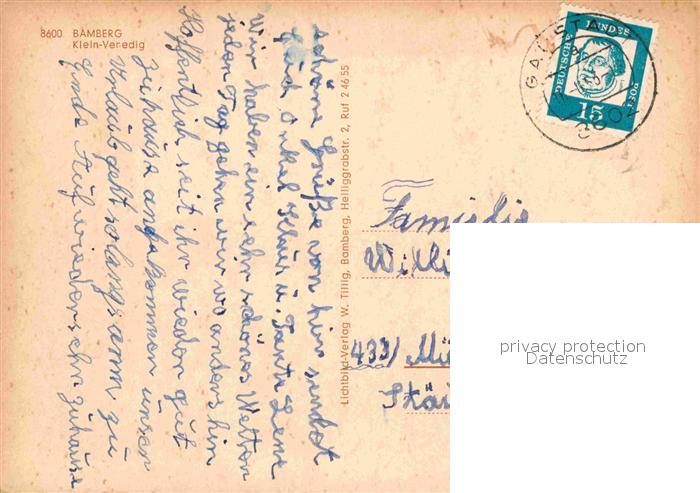 8600 BAMBERG
Klein-Venedig
schöne Grüße von hir sendet
Euch Onkel Klaus u. Tante Lene
Wir haben ein sehr schönes Wetter
jeden Tag gehen wir wo anders hin
Hoffentlich seit ihr wieder gut
zuhause angekommen unser
Urlaub geht so langsamm zu
Ende Auf wiedersehn zuhause
Lichtbild-Verlag W. Tillig, Bamberg, Heiliggrabstr. 2, Ruf 2 46 55
DEUTSCHE BUNDESPOST
15
Familie
433/ Mü
privacy protection
Datenschutz